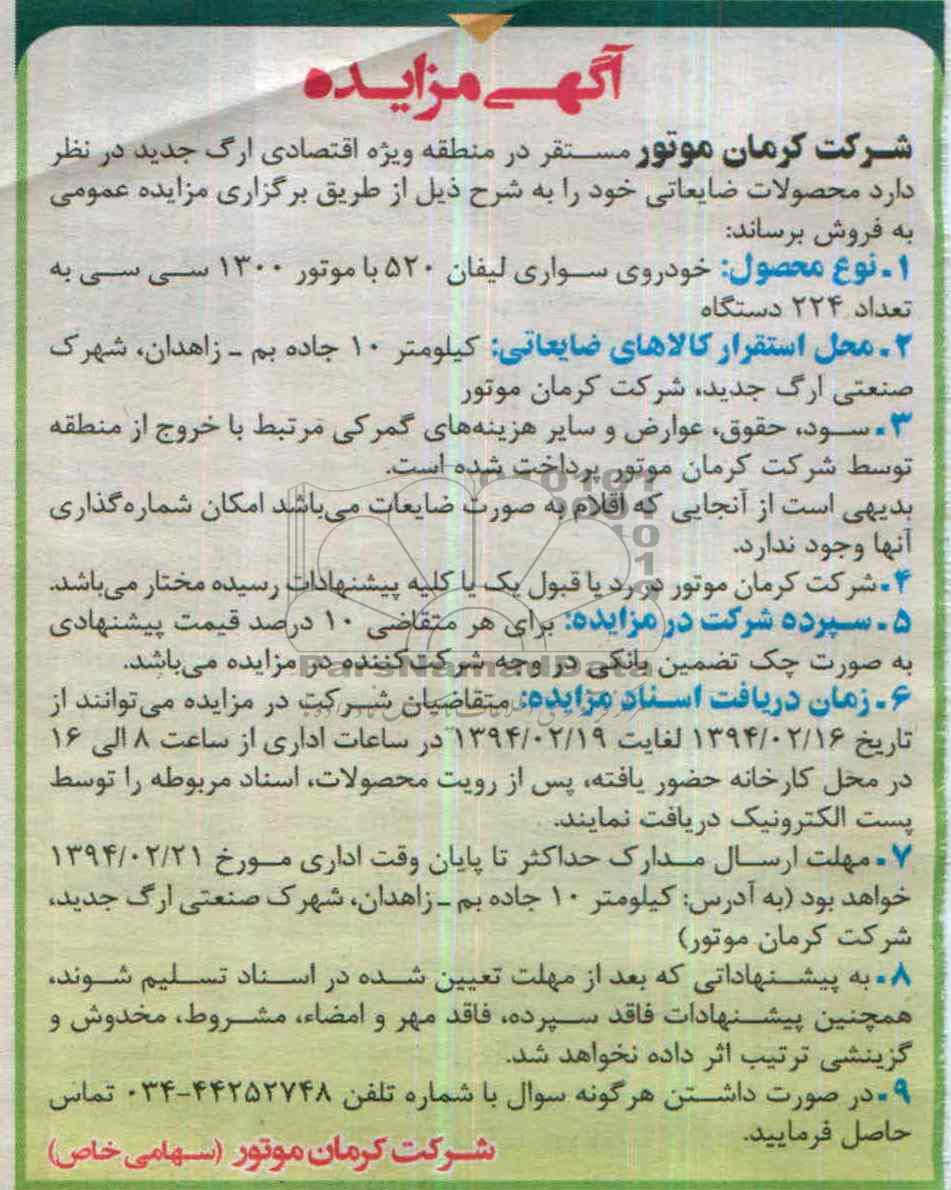 آگهی مزایده
شرکت کرمان موتور مستقر در منطقه ویژه اقتصادی ارگ جدید در نظر
دارد محصولات ضایعاتی خود را به شرح ذیل از طریق برگزاری مزایده عمومی
به فروش برساند:
۱ـ نوع محصول: خودروی سواری لیفان ۵۲۰ با موتور ۱۳۰۰ سی سی به
تعداد ۲۲۴ دستگاه
۲ـ محل استقرار کالاهای ضایعاتی: کیلومتر ۱۰ جاده بم ـ زاهدان، شهرک
صنعتی ارگ جدید، شرکت کرمان موتور
۳ـ سود، حقوق، عوارض و سایر هزینه‌های گمرکی مرتبط با خروج از منطقه
توسط شرکت کرمان موتور پرداخت شده است.
بدیهی است از آنجایی که اقلام به صورت ضایعات می‌باشد امکان شماره‌گذاری
آنها وجود ندارد.
۴ـ شرکت کرمان موتور در رد یا قبول یک یا کلیه پیشنهادات رسیده مختار می‌باشد.
۵ـ سپرده شرکت در مزایده: برای هر متقاضی ۱۰ درصد قیمت پیشنهادی
به صورت چک تضمین بانکی در وجه شرکت‌کننده در مزایده می‌باشد.
ParsNamadData
۶ـ زمان دریافت اسناد مزایده: متقاضیان شرکت در مزایده می‌توانند از
تاریخ ۱۳۹۴/۰۲/۱۶ لغایت ۱۳۹۴/۰۲/۱۹ در ساعات اداری از ساعت ۸ الی ۱۶
در محل کارخانه حضور یافته، پس از رویت محصولات، اسناد مربوطه را توسط
پست الکترونیک دریافت نمایند.
۷ـ مهلت ارسال مدارک حداکثر تا پایان وقت اداری مورخ ۱۳۹۴/۰۲/۲۱
خواهد بود (به آدرس: کیلومتر ۱۰ جاده بم ـ زاهدان، شهرک صنعتی ارگ جدید،
شرکت کرمان موتور)
۸ـ به پیشنهاداتی که بعد از مهلت تعیین شده در اسناد تسلیم شوند،
همچنین پیشنهادات فاقد سپرده، فاقد مهر و امضاء، مشروط، مخدوش و
گزینشی ترتیب اثر داده نخواهد شد.
۹ـ در صورت داشتن هرگونه سوال با شماره تلفن ۴۴۲۵۲۷۴۸-۰۳۴ تماس
حاصل فرمایید.
شرکت کرمان موتور (سهامی خاص)